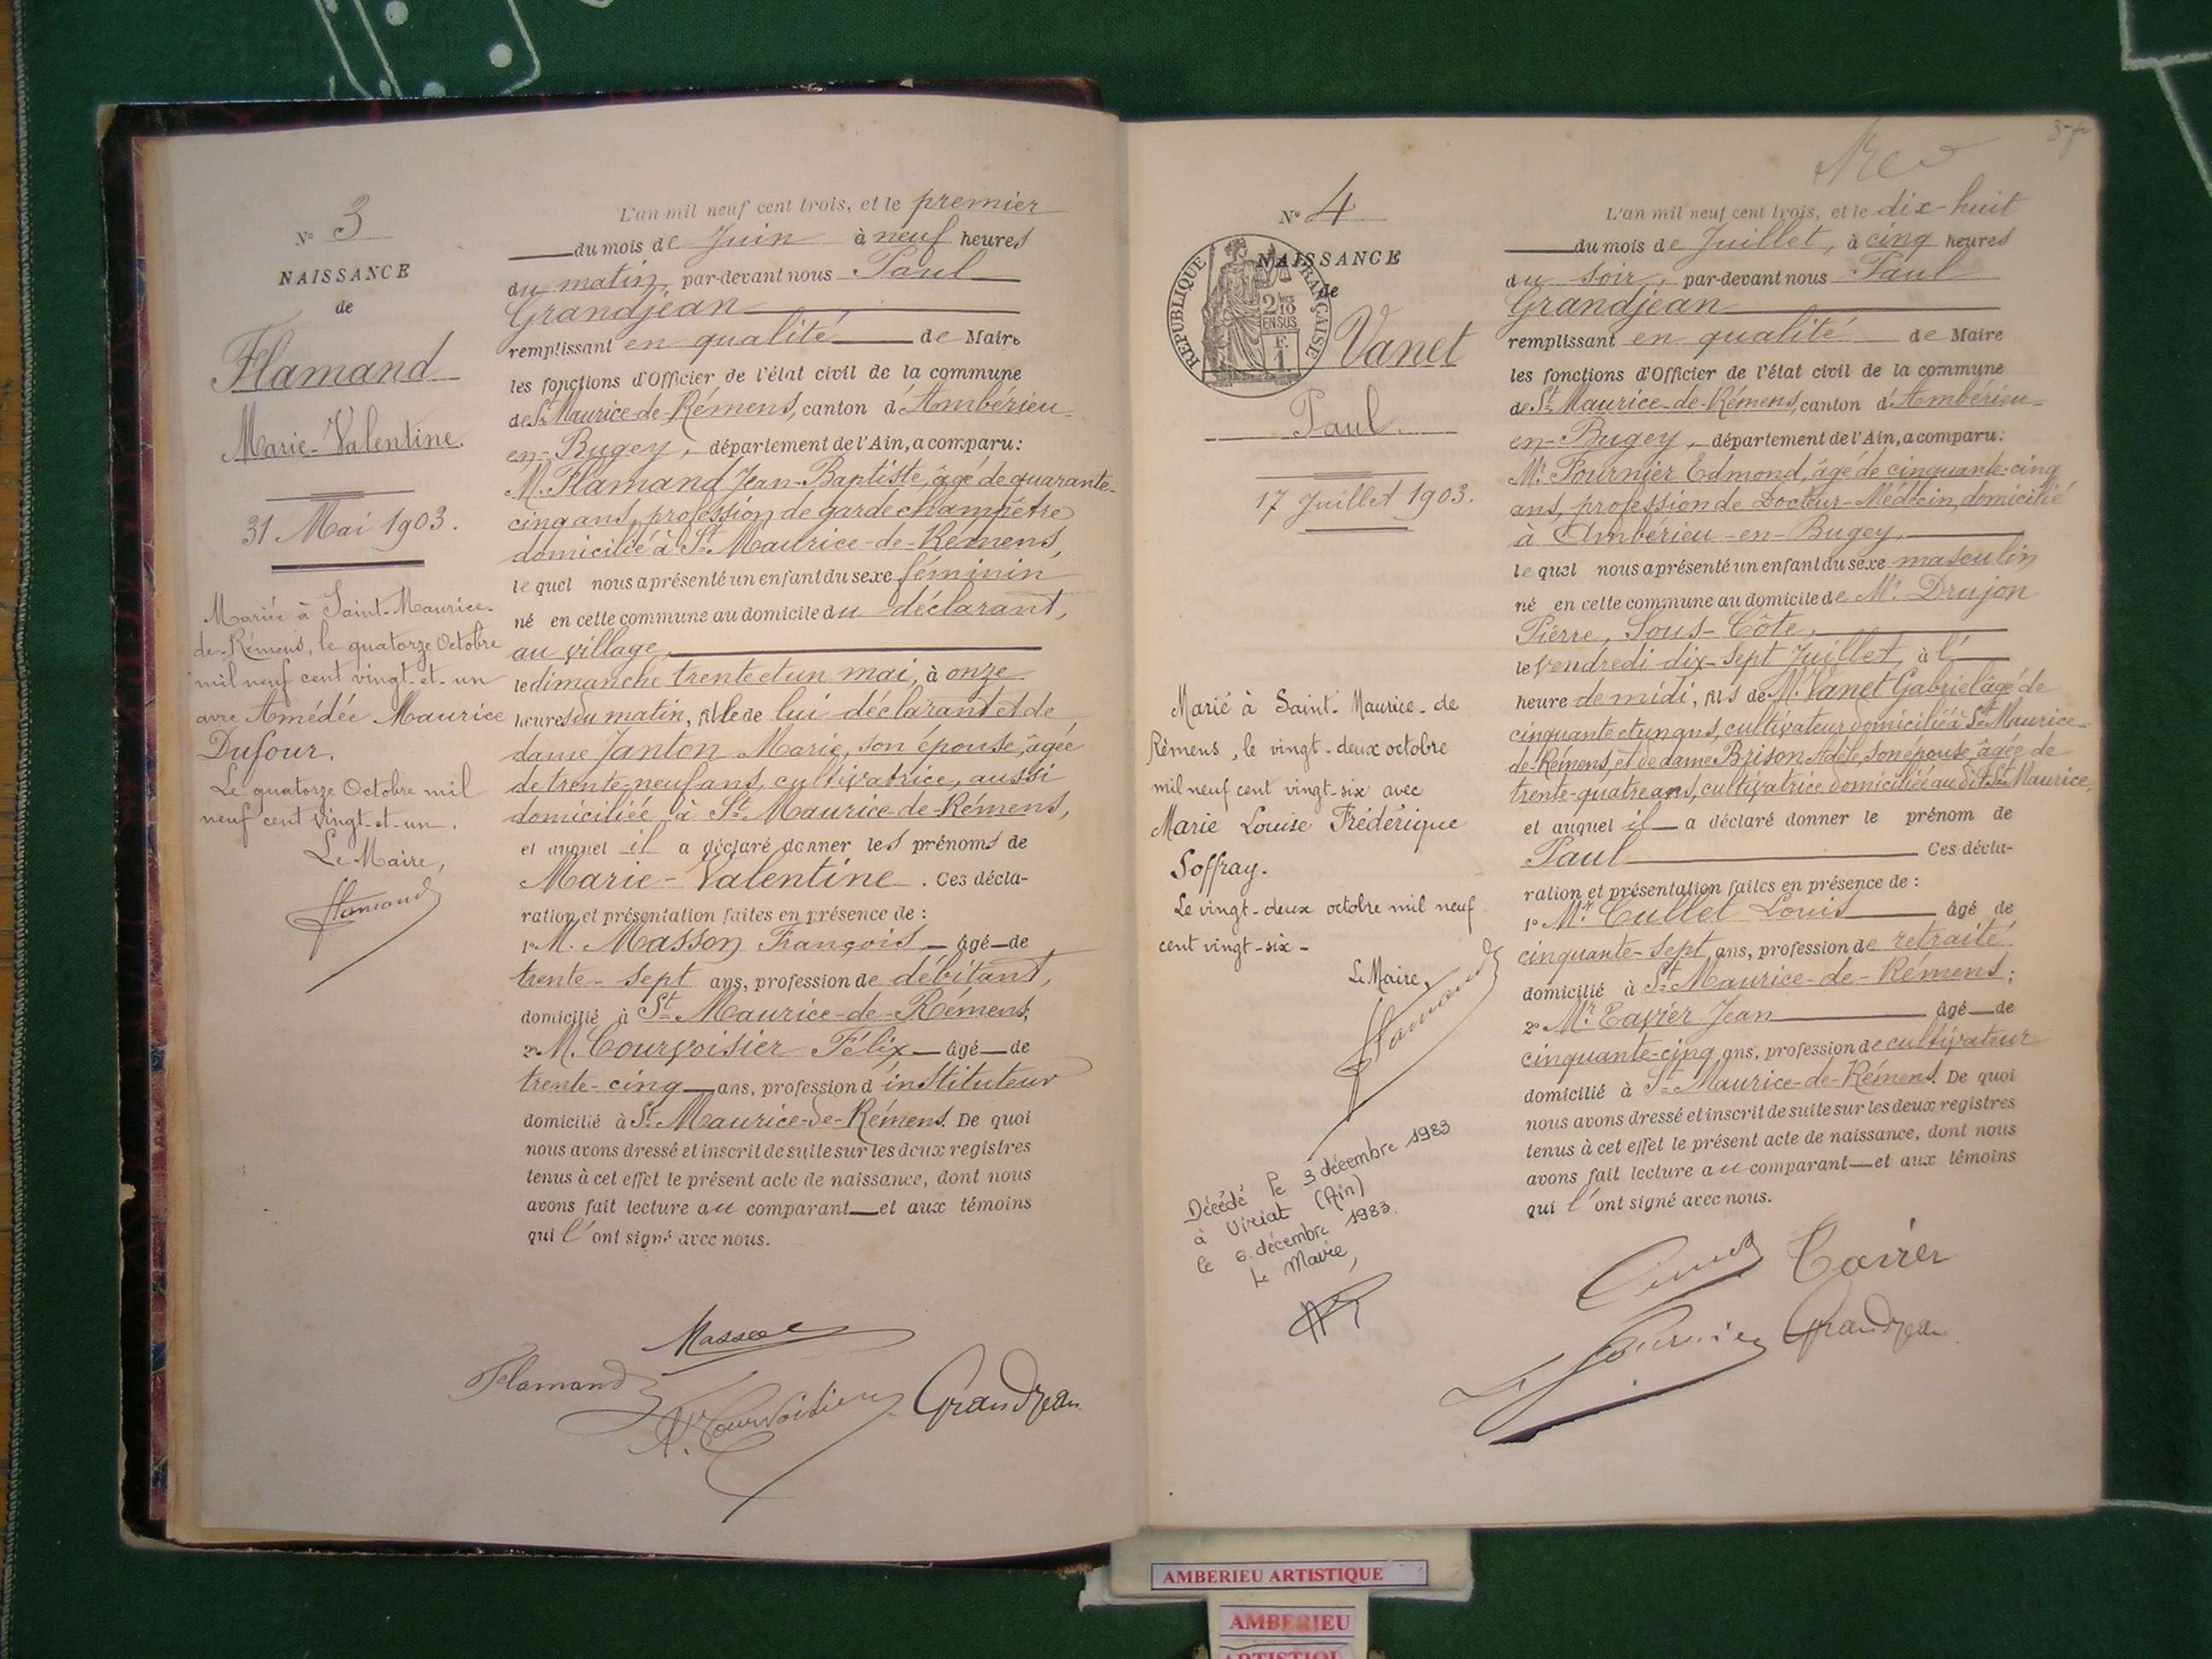 N° 3
NAISSANCE
de
Flamand
Marie-Valentine.
31 Mai 1903.
Mariée à Saint-Maurice-
de-Rémens, le quatorze Octobre
mil neuf cent vingt-et-un
avec Amédée Maurice
Dufour.
Le quatorze Octobre mil
neuf cent vingt-et-un.
Le Maire,
Flamand
L'an mil neuf cent trois, et le premier
du mois de Juin à neuf heures
du matin, par-devant nous Paul
Grandjean
remplissant en qualité de Maire
les fonctions d'Officier de l'état civil de la commune
de St Maurice-de-Rémens, canton d'Ambérieu-
en-Bugey, département de l'Ain, a comparu:
M. Flamand Jean-Baptiste, âgé de quarante-
cinq ans, profession de garde champêtre
domicilié à St Maurice-de-Rémens,
lequel nous a présenté un enfant du sexe féminin
né en cette commune au domicile du déclarant,
au village,
le dimanche trente et un mai, à onze
heures du matin, fille de lui déclarant et de
dame Janton Marie, son épouse, âgée
de trente-neuf ans, cultivatrice, aussi
domiciliée à St Maurice-de-Rémens,
et auquel il a déclaré donner les prénoms de
Marie-Valentine. Ces décla-
ration et présentation faites en présence de :
1° M. Masson François âgé de
trente-sept ans, profession de débitant,
domicilié à St Maurice-de-Rémens;
2° M. Courvoisier Félix âgé de
trente-cinq ans, profession d'instituteur
domicilié à St Maurice-de-Rémens. De quoi
nous avons dressé et inscrit de suite sur les deux registres
tenus à cet effet le présent acte de naissance, dont nous
avons fait lecture au comparant et aux témoins
qui l'ont signé avec nous.
Masson
Flamand
Courvoisier Grandjean
N° 4
NAISSANCE
de
RÉPUBLIQUE FRANÇAISE
2/10
EN SUS
F.
1
Vanet
Paul.
17 Juillet 1903.
Marié à Saint-Maurice-de
Rémens, le vingt-deux octobre
mil neuf cent vingt-six avec
Marie Louise Frédérique
Soffray.
Le vingt-deux octobre mil neuf
cent vingt-six-
Le Maire,
Flamand
Décédé le 3 décembre 1983
à Viriat (Ain)
le 6 décembre 1983.
Le Maire,
L'an mil neuf cent trois, et le dix-huit
du mois de Juillet, à cinq heures
du soir, par-devant nous Paul
Grandjean
remplissant en qualité de Maire
les fonctions d'Officier de l'état civil de la commune
de St Maurice-de-Rémens, canton d'Ambérieu-
en-Bugey, département de l'Ain, a comparu:
Mr Fournier Edmond, âgé de cinquante-cinq
ans, profession de Docteur-Médecin, domicilié
à Ambérieu-en-Bugey,
lequel nous a présenté un enfant du sexe masculin
né en cette commune au domicile de Mr Drujon
Pierre, Sous-Côte,
le Vendredi dix-sept Juillet, à l'
heure de midi, fils de M. Vanet Gabriel âgé de
cinquante et un ans, cultivateur domicilié à St Maurice-
de-Rémens, et de dame Brison Adèle, son épouse, âgée de
trente-quatre ans, cultivatrice domiciliée au dit St Maurice,
et auquel il a déclaré donner le prénom de
Paul Ces décla-
ration et présentation faites en présence de :
1° Mr Cullet Louis âgé de
cinquante-sept ans, profession de retraité
domicilié à St Maurice-de-Rémens;
2° Mr Tavier Jean âgé de
cinquante-cinq ans, profession de cultivateur
domicilié à St Maurice-de-Rémens. De quoi
nous avons dressé et inscrit de suite sur les deux registres
tenus à cet effet le présent acte de naissance, dont nous
avons fait lecture au comparant et aux témoins
qui l'ont signé avec nous.
Fournier Grandjean
AMBERIEU ARTISTIQUE
AMBERIEU